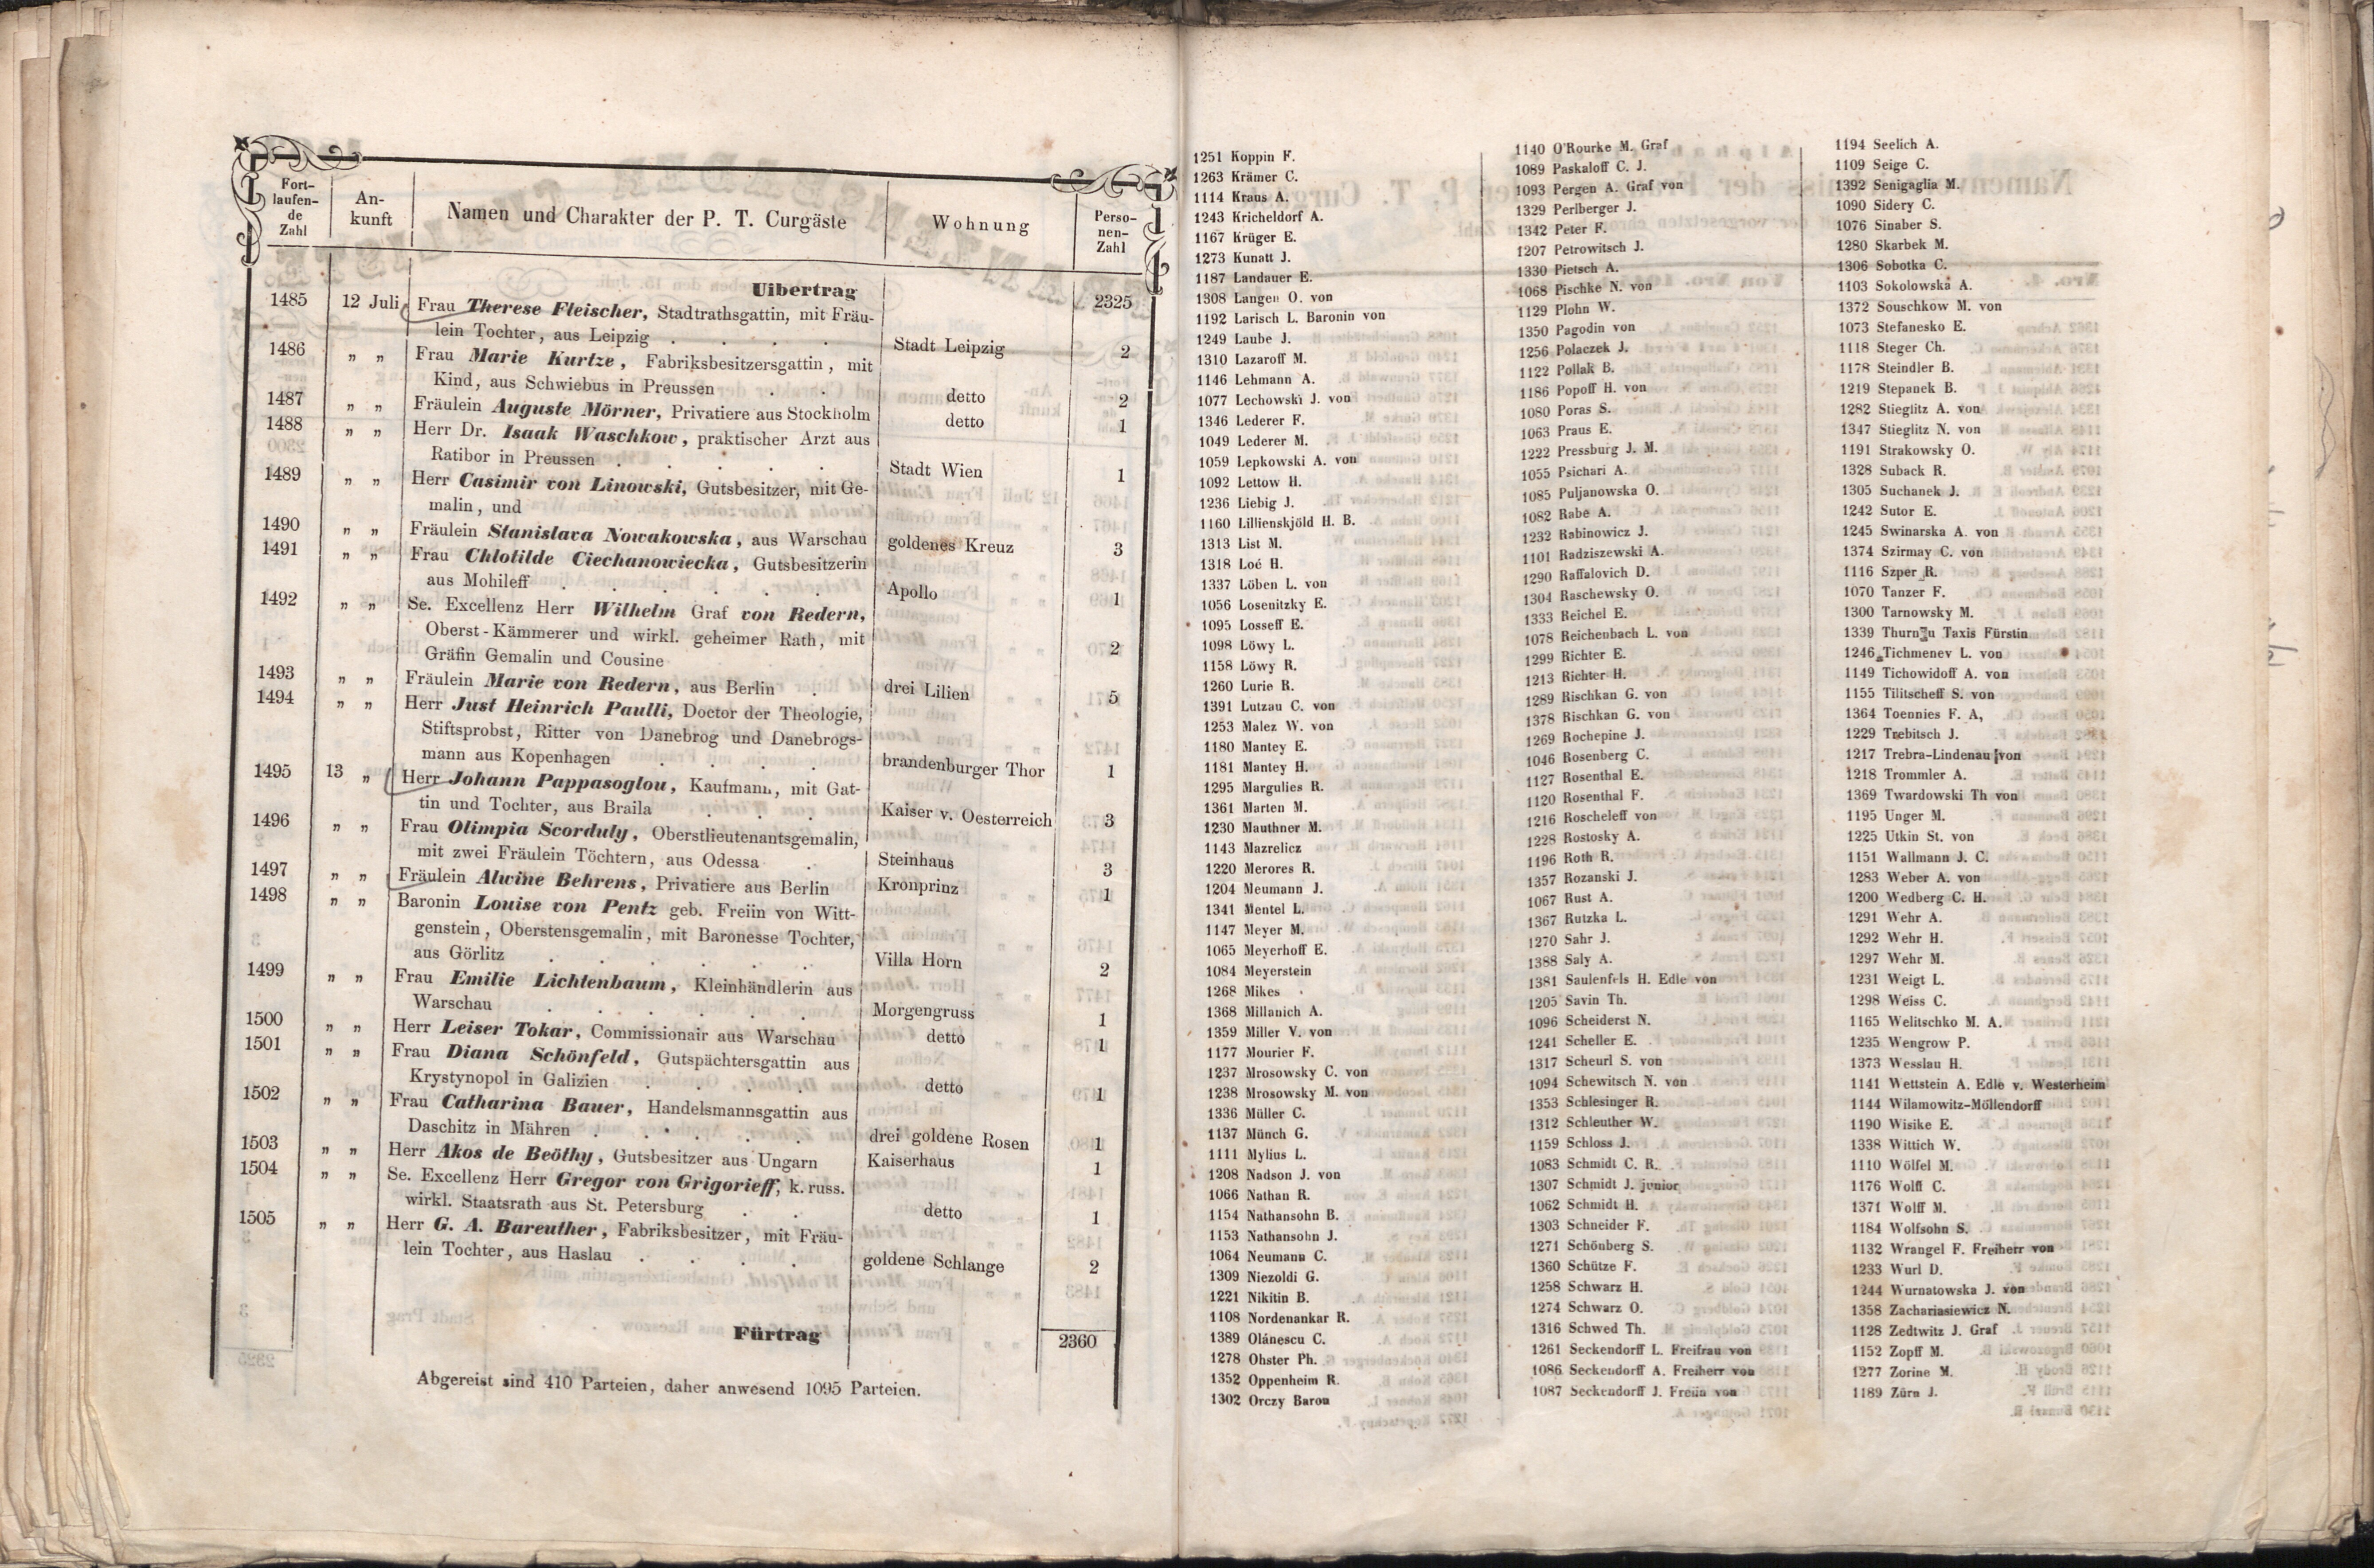 Fort-
laufen-
de
Zahl
An-
kunft
Namen und Charakter der P. T. Curgäste
Wohnung
Perso-
nen-
Zahl
Uibertrag 2325
1485 12 Juli Frau Therese Fleischer, Stadtrathsgattin, mit Fräu-
lein Tochter, aus Leipzig . . . . Stadt Leipzig 2
1486 „ „ Frau Marie Kurtze, Fabriksbesitzersgattin, mit
Kind, aus Schwiebus in Preussen . . detto 2
1487 „ „ Fräulein Auguste Mörner, Privatiere aus Stockholm detto 1
1488 „ „ Herr Dr. Isaak Waschkow, praktischer Arzt aus
Ratibor in Preussen . . . . . Stadt Wien 1
1489 „ „ Herr Casimir von Linowski, Gutsbesitzer, mit Ge-
malin, und
1490 „ „ Fräulein Stanislava Nowakowska, aus Warschau goldenes Kreuz 3
1491 „ „ Frau Chlotilde Ciechanowiecka, Gutsbesitzerin
aus Mohileff . . . . . . Apollo 1
1492 „ „ Se. Excellenz Herr Wilhelm Graf von Redern,
Oberst-Kämmerer und wirkl. geheimer Rath, mit
Gräfin Gemalin und Cousine 2
1493 „ „ Fräulein Marie von Redern, aus Berlin . drei Lilien 5
1494 „ „ Herr Just Heinrich Paulli, Doctor der Theologie,
Stiftsprobst, Ritter von Danebrog und Danebrogs-
mann aus Kopenhagen . . . . brandenburger Thor 1
1495 13 „ Herr Johann Pappasoglou, Kaufmann, mit Gat-
tin und Tochter, aus Braila . . . Kaiser v. Oesterreich 3
1496 „ „ Frau Olimpia Scorduly, Oberstlieutenantsgemalin,
mit zwei Fräulein Töchtern, aus Odessa . Steinhaus 3
1497 „ „ Fräulein Alwine Behrens, Privatiere aus Berlin Kronprinz 1
1498 „ „ Baronin Louise von Pentz geb. Freiin von Witt-
genstein, Oberstensgemalin, mit Baronesse Tochter,
aus Görlitz . . . . . . Villa Horn 2
1499 „ „ Frau Emilie Lichtenbaum, Kleinhändlerin aus
Warschau . . . . . . Morgengruss 1
1500 „ „ Herr Leiser Tokar, Commissionair aus Warschau detto 1
1501 „ „ Frau Diana Schönfeld, Gutspächtersgattin aus
Krystynopol in Galizien . . . . detto 1
1502 „ „ Frau Catharina Bauer, Handelsmannsgattin aus
Daschitz in Mähren . . . . . drei goldene Rosen 1
1503 „ „ Herr Akos de Beöthy, Gutsbesitzer aus Ungarn Kaiserhaus 1
1504 „ „ Se. Excellenz Herr Gregor von Grigorieff, k. russ.
wirkl. Staatsrath aus St. Petersburg . . detto 1
1505 „ „ Herr G. A. Bareuther, Fabriksbesitzer, mit Fräu-
lein Tochter, aus Haslau . . . . goldene Schlange 2
Fürtrag 2360
Abgereist sind 410 Parteien, daher anwesend 1095 Parteien.
1251 Koppin F.
1263 Krämer C.
1114 Kraus A.
1243 Kricheldorf A.
1167 Krüger E.
1273 Kunatt J.
1187 Landauer E.
1308 Langen O. von
1192 Larisch L. Baronin von
1249 Laube J.
1310 Lazaroff M.
1146 Lehmann A.
1077 Lechowski J. von
1346 Lederer F.
1049 Lederer M.
1059 Lepkowski A. von
1092 Lettow H.
1236 Liebig J.
1160 Lillienskjöld H. B.
1313 List M.
1318 Loé H.
1337 Löben L. von
1056 Losenitzky E.
1095 Losseff E.
1098 Löwy L.
1158 Löwy R.
1260 Lurie R.
1391 Lutzau C. von
1253 Malez W. von
1180 Mantey E.
1181 Mantey H.
1295 Margulies R.
1361 Marten M.
1230 Mauthner M.
1143 Mazrelicz
1220 Merores R.
1204 Meumann J.
1341 Mentel L.
1147 Meyer M.
1065 Meyerhoff E.
1084 Meyerstein
1268 Mikes
1368 Millanich A.
1359 Miller V. von
1177 Mourier F.
1237 Mrosowsky C. von
1238 Mrosowsky M. von
1336 Müller C.
1137 Münch G.
1111 Mylius L.
1208 Nadson J. von
1066 Nathan R.
1154 Nathansohn B.
1153 Nathansohn J.
1064 Neumann C.
1309 Niezoldi G.
1221 Nikitin B.
1108 Nordenankar R.
1389 Olánescu C.
1278 Ohster Ph.
1352 Oppenheim R.
1302 Orczy Baron
1140 O'Rourke M. Graf
1089 Paskaloff C. J.
1093 Pergen A. Graf von
1329 Perlberger J.
1342 Peter F.
1207 Petrowitsch J.
1330 Pietsch A.
1068 Pischke N. von
1129 Plohn W.
1350 Pagodin von
1256 Polaczek J.
1122 Pollak B.
1186 Popoff H. von
1080 Poras S.
1063 Praus E.
1222 Pressburg J. M.
1055 Psichari A.
1085 Puljanowska O.
1082 Rabe A.
1232 Rabinowicz J.
1101 Radziszewski A.
1290 Raffalovich D.
1304 Raschewsky O.
1333 Reichel E.
1078 Reichenbach L. von
1299 Richter E.
1213 Richter H.
1289 Rischkan G. von
1378 Rischkan G. von
1269 Rochepine J.
1046 Rosenberg C.
1127 Rosenthal E.
1120 Rosenthal F.
1216 Roscheleff von
1228 Rostosky A.
1196 Roth R.
1357 Rozanski J.
1067 Rust A.
1367 Rutzka L.
1270 Sahr J.
1388 Saly A.
1381 Saulenfels H. Edle von
1205 Savin Th.
1096 Scheiderst N.
1241 Scheller E.
1317 Scheurl S. von
1094 Schewitsch N. von
1353 Schlesinger R.
1312 Schleuther W.
1159 Schloss J.
1083 Schmidt C. R.
1307 Schmidt J. junior
1062 Schmidt H.
1303 Schneider F.
1271 Schönberg S.
1360 Schütze F.
1258 Schwarz H.
1274 Schwarz O.
1316 Schwed Th.
1261 Seckendorff L. Freifrau von
1086 Seckendorff A. Freiherr von
1087 Seckendorff J. Freiin von
1194 Seelich A.
1109 Seige C.
1392 Senigaglia M.
1090 Sidery C.
1076 Sinaber S.
1280 Skarbek M.
1306 Sobotka C.
1103 Sokolowska A.
1372 Souschkow M. von
1073 Stefanesko E.
1118 Steger Ch.
1178 Steindler B.
1219 Stepanek B.
1282 Stieglitz A. von
1347 Stieglitz N. von
1191 Strakowsky O.
1328 Suback R.
1305 Suchanek J.
1242 Sutor E.
1245 Swinarska A. von
1374 Szirmay C. von
1116 Szper R.
1070 Tanzer F.
1300 Tarnowsky M.
1339 Thurn u Taxis Fürstin
1246 Tichmenev L. von
1149 Tichowidoff A. von
1155 Tilitscheff S. von
1364 Toennies F. A,
1229 Trebitsch J.
1217 Trebra-Lindenau von
1218 Trommler A.
1369 Twardowski Th von
1195 Unger M.
1225 Utkin St. von
1151 Wallmann J. C.
1283 Weber A. von
1200 Wedberg C. H.
1291 Wehr A.
1292 Wehr H.
1297 Wehr M.
1231 Weigt L.
1298 Weiss C.
1165 Welitschko M. A.
1235 Wengrow P.
1373 Wesslau H.
1141 Wettstein A. Edle v. Westerheim
1144 Wilamowitz-Möllendorff
1190 Wisike E.
1338 Wittich W.
1110 Wölfel M.
1176 Wolff C.
1371 Wolff M.
1184 Wolfsohn S.
1132 Wrangel F. Freiherr von
1233 Wurl D.
1244 Wurnatowska J. von
1358 Zachariasiewicz N.
1128 Zedtwitz J. Graf
1152 Zopff M.
1277 Zorine M.
1189 Zürn J.